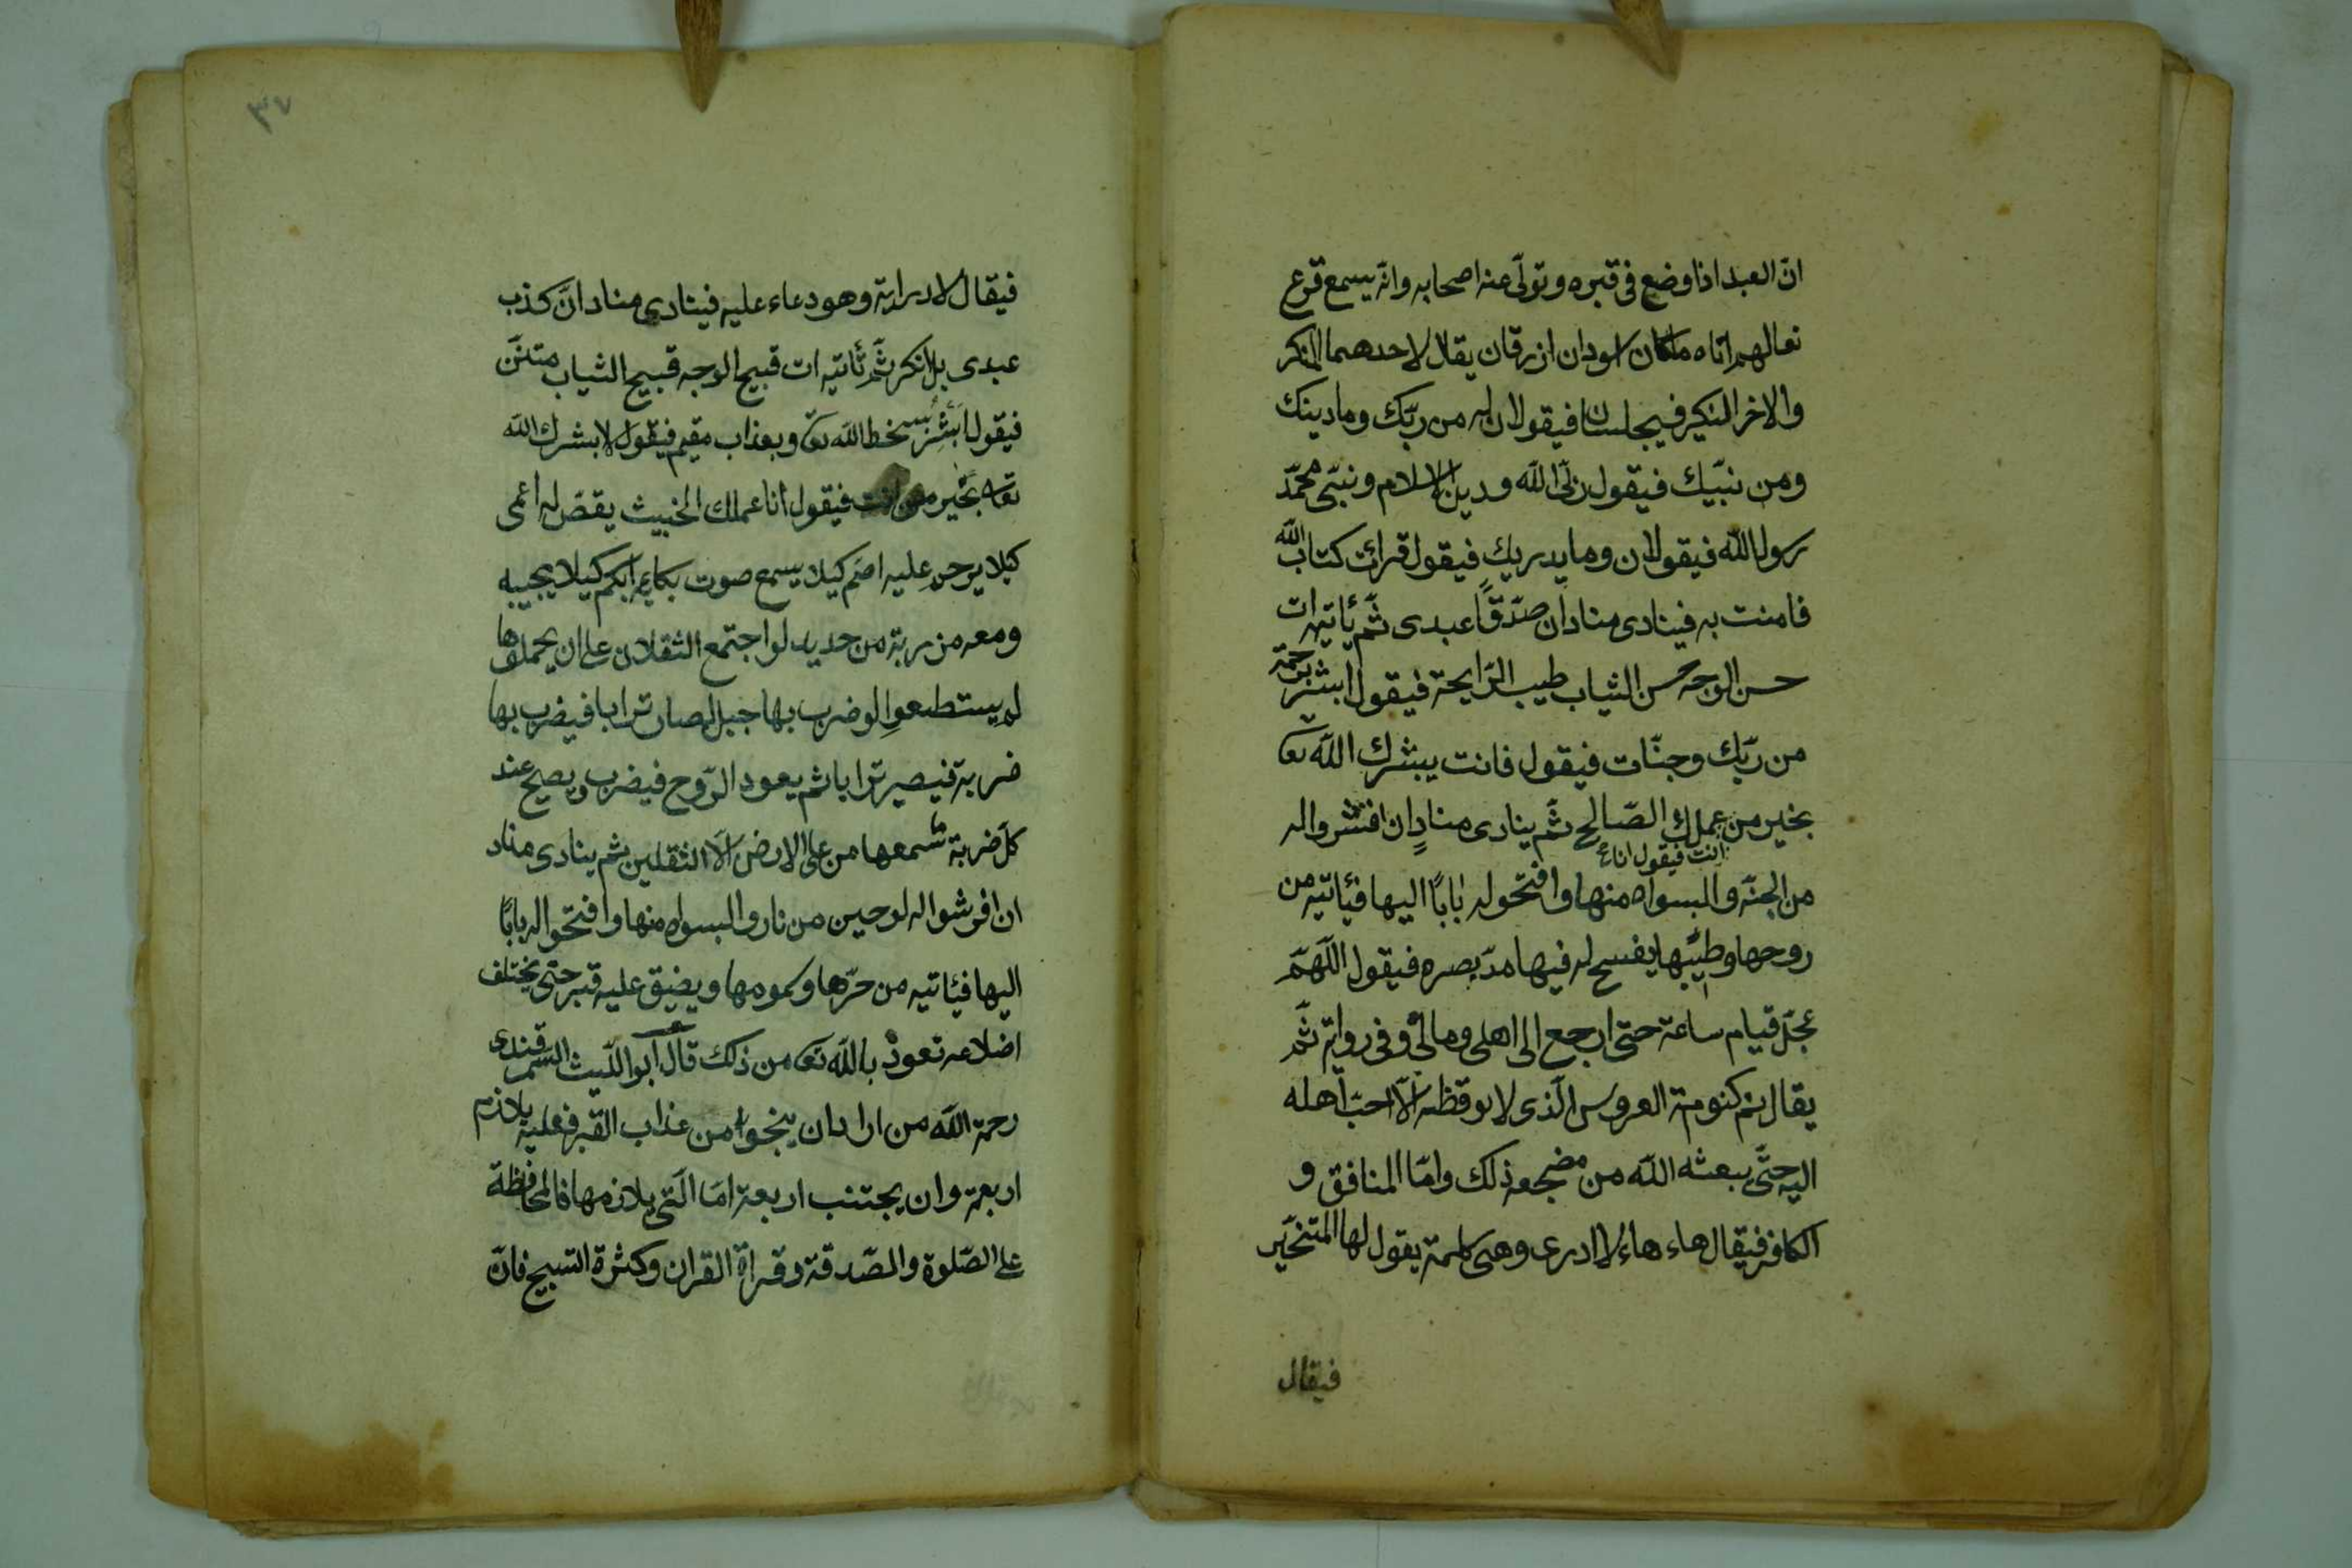 انّ العبد اذا وضع فى قبره وتولّى عنه اصحابه وانّه يسمع قرع
نعالهم اتاه ملكان اسودان ازرقان يقال لاحدهما المنكر
والاخر النكير فيجلسان فيقولان له من ربّك وما دينك
ومن نبّيك فيقول ربّى الله ودين الاسلام ونبيّى محمّد
رسول الله فيقولان وما يدريك فيقول قرائت كتاب الله
فامنت به فينادى مناد ان صدّقاً عبدى ثمّ يأتيه ات
حسن الوجه حسن الثياب طيب الرّايحة فيقول ابشر برحمة
من ربّك وجنّات فيقول فانت يبشرك الله تعا
بخير من عملك الصّالح ثمّ ينادى منادٍ ان افتشوا له
انت فيقول انا
من الجنّة والبسواه منها وافتحوله بابًا اليها فيأتيه من
روحها وطيبها يفسح له فيها مدّ بصره فيقول اللّهمّ
عجّل قيام ساعة حتى ارجع الى اهلى ومالى وفى رواية ثمّ
يقال نم كنومة العروس الّذى لا يوقظه الاّ احبّ اهله
اليه حتّى يبعثه الله من مضجعه ذلك وامّا المنافق و
الكافر فيقال هاء هاء لا ادرى وهى كلمة يقول لها المتحيّر
فيقال
٣٧
فيقال لا دراية وهو دعاء عليه فينادى مناد انّ كذب
عبدى بل انكر ثمّ تأتيه ات قبيح الوجه قبيح الثياب متنّن
فيقول ابشر بسخط الله تعا وبعذاب مقيم فيقول لا بشرك الله
تعا بخير من انت فيقول انا عملك الخبيث يقصّ له اعمى
كيلا يرحم عليه اصّم كيلا يسمع صوت بكايه ابكم كيلا يجيبه
ومعه مزربة من حديد لو اجتمع الثقلان على ان يحملوها
لم يستطعوا لو ضرب بها جبل لصار ترابا فيضرب بها
ضربة فيصير ترابا ثم يعود الرّوح فيضرب ويصيح عند
كلّ ضربة سمعها من على الارض الاّ الثقلين ثم ينادى مناد
ان افرشوا له لوحين من نار والبسواه منها وافتحوا له بابًا
اليها فيأتيه من حرّها وكمومها ويضيق عليه قبر حتى يختلف
اضلاعه نعوذ بالله تعا من ذلك قال ابو اللّيث السمرقندى
رحمة الله من اراد ان ينجوا من عذاب القبر فعليه يلازم
اربعة وان يجتنب اربعة امّا الّتى يلازمها فالمحافظة
على الصّلوة والصّدقة وقراة القران وكثرة التسبيح فانّ